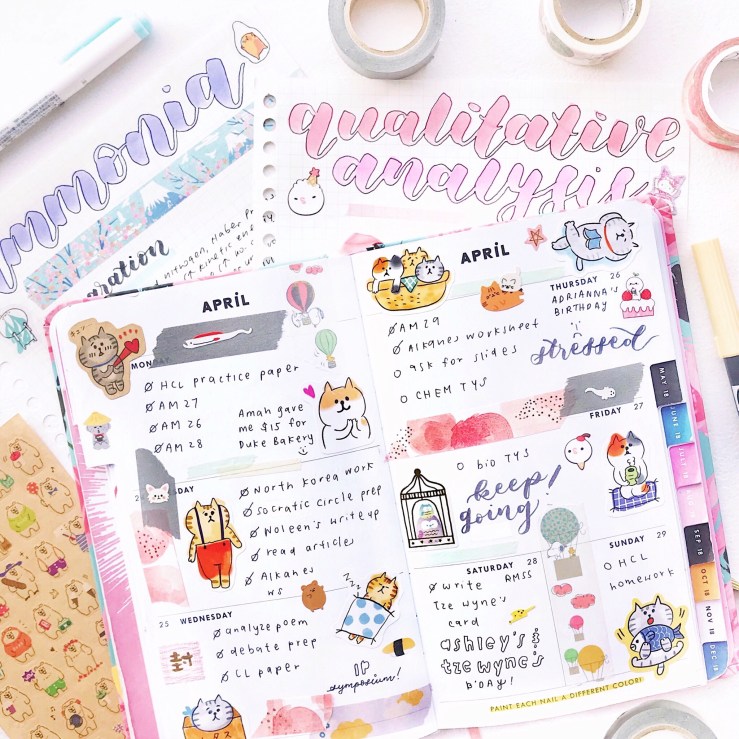 mmonia
qualitative
analysis
APRiL
MOND
Ø HCL practice paper
Ø AM 27
Ø AM 26
Ø AM 28
Amah gave
me $15 for
Duke Bakery
Ø North Korea work
Ø Socratic Circle prep
Ø Noleen's write up
Ø read articles
Ø Alkanes
WS
25 WEDNESDAY
Ø analyze poem
Ø debate prep
Ø LL paper
IP
symposium!
APRiL
Ø AM 29
Ø Alkanes worksheet
O ask for slides
O CHEM TYS
THURSDAY 26
ADRIANNA'S
BIRTHDAY
stressed
FRIDAY 27
O bio TYS
keep
going!
SATURDAY 28
Ø write AM55
Tze Wyne's
card
ashley's &
tze wyne's
B'DAY!
SUNDAY 29
O HCL
homework
PAINT EACH NAIL A DIFFERENT COLOR!
MAY 18
JUNE 18
SEP 18
OCT 18
NOV 18
DEC 18